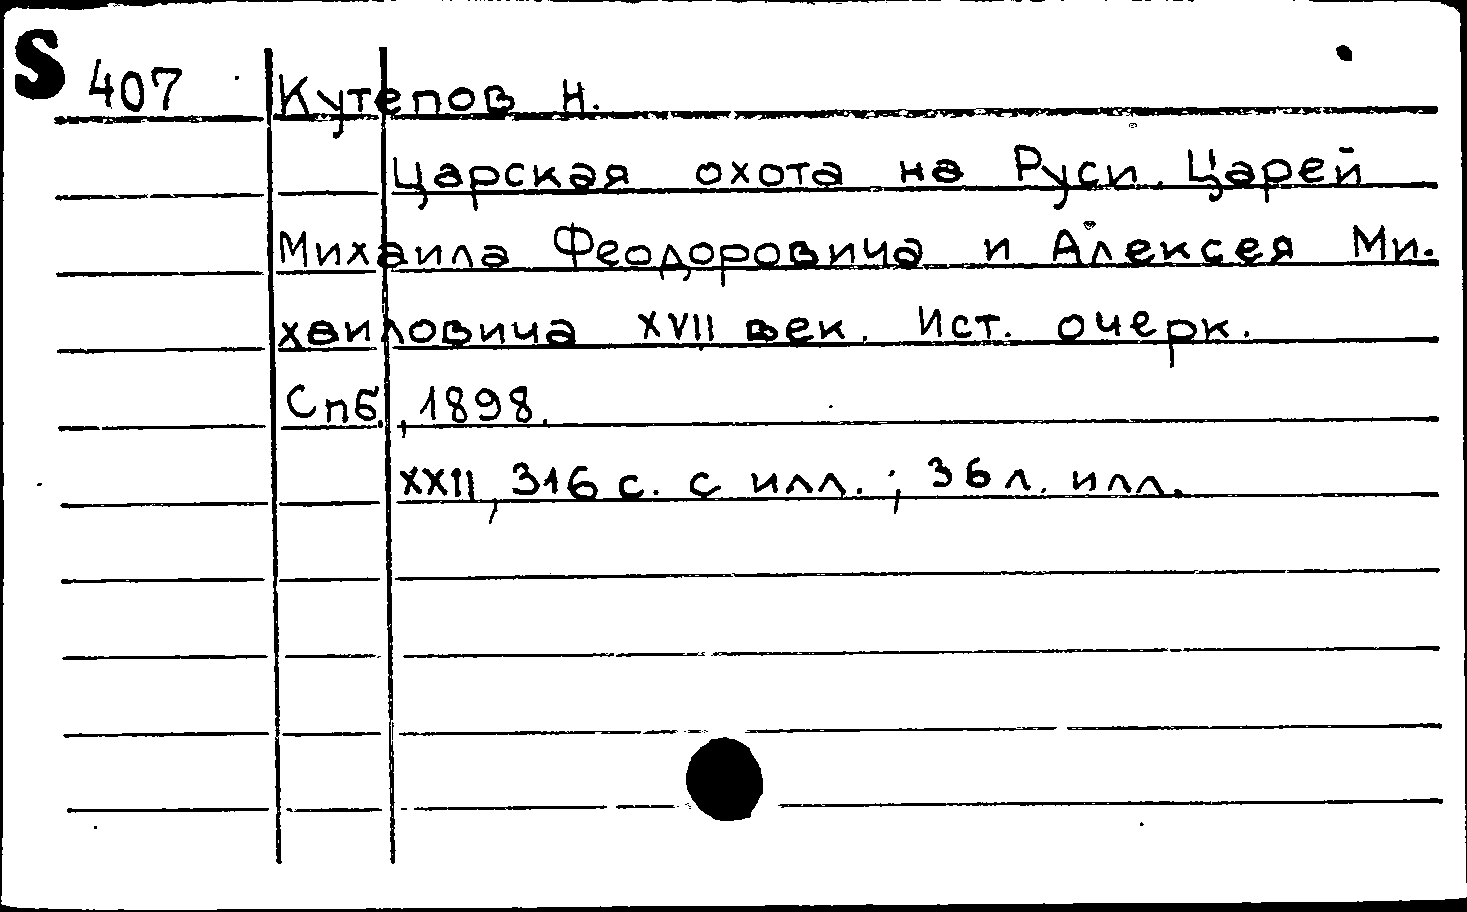 S 407 Кутепов Н.
Царская охота на Руси. Царей
Михаила Феодоровича и Алексея Ми-
хаиловича XVII век. Ист. очерк.
Спб., 1898.
XXII, 316 с. с илл.; 36 л. илл.